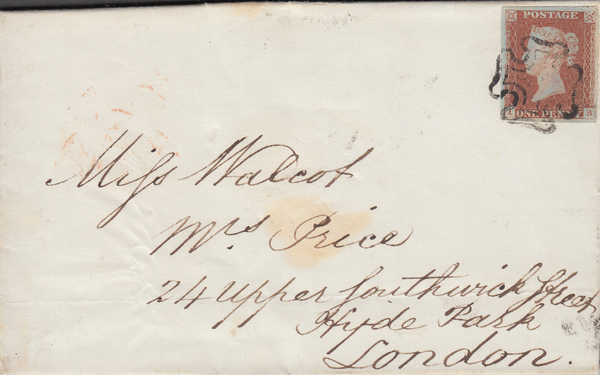 POSTAGE
ONE PENNY
B
Miſs Walcot
Mrs Price
24 Upper Southwick Street
Hyde Park
London.